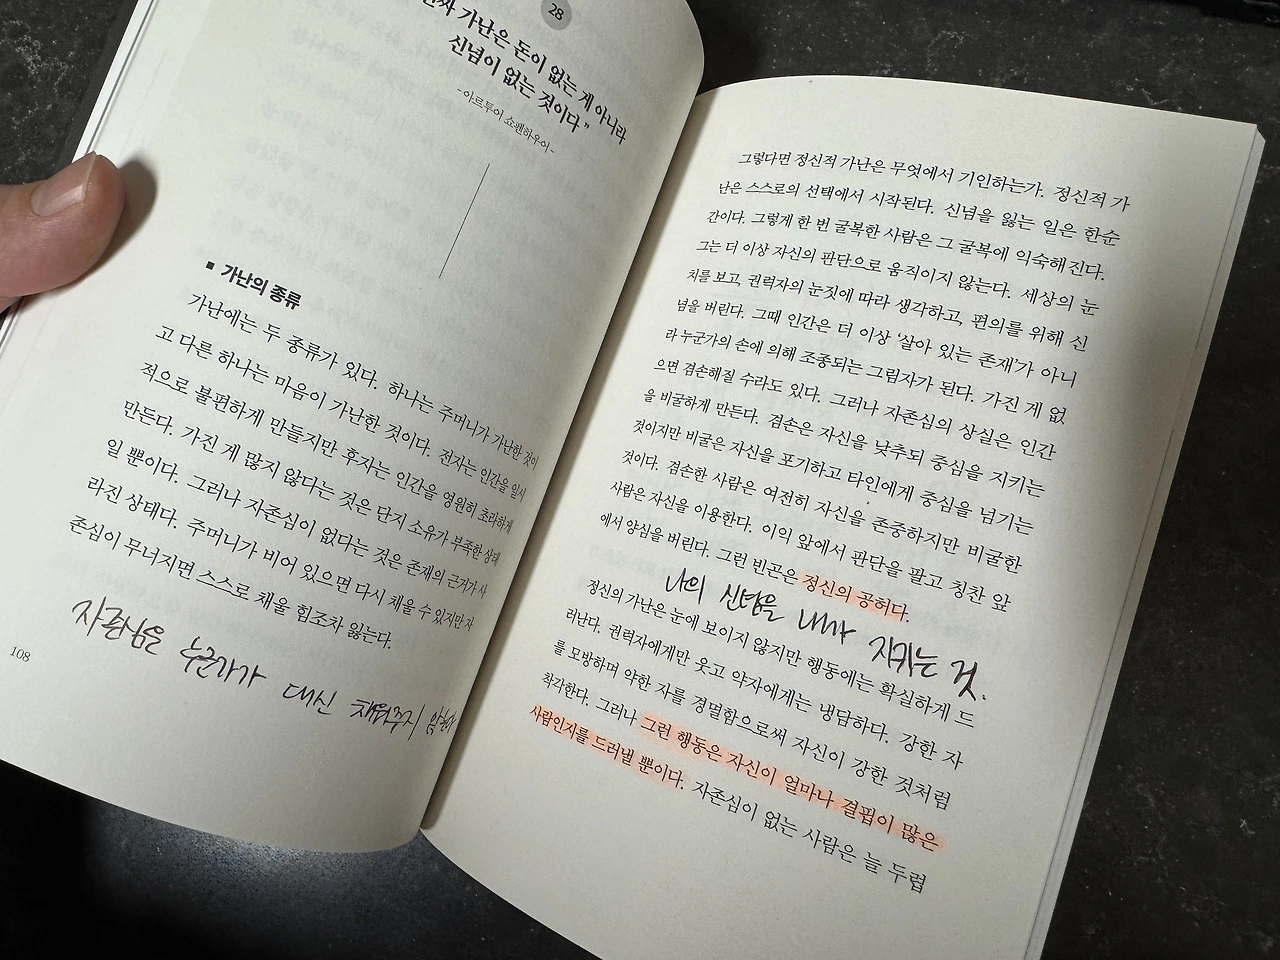 28
진짜 가난은 돈이 없는 게 아니라
신념이 없는 것이다”
-아르투어 쇼펜하우어-
▪ 가난의 종류
가난에는 두 종류가 있다. 하나는 주머니가 가난한 것이
고 다른 하나는 마음이 가난한 것이다. 전자는 인간을 일시
적으로 불편하게 만들지만 후자는 인간을 영원히 초라하게
만든다. 가진 게 많지 않다는 것은 단지 소유가 부족한 상태
일 뿐이다. 그러나 자존심이 없다는 것은 존재의 근거가 사
라진 상태다. 주머니가 비어 있으면 다시 채울 수 있지만 자
존심이 무너지면 스스로 채울 힘조차 잃는다.
자존심을 누군가가 대신 채워주지
108
그렇다면 정신적 가난은 무엇에서 기인하는가. 정신적 가
난은 스스로의 선택에서 시작된다. 신념을 잃는 일은 한순
간이다. 그렇게 한 번 굴복한 사람은 그 굴복에 익숙해진다.
그는 더 이상 자신의 판단으로 움직이지 않는다. 세상의 눈
치를 보고, 권력자의 눈짓에 따라 생각하고, 편의를 위해 신
념을 버린다. 그때 인간은 더 이상 ‘살아 있는 존재’가 아니
라 누군가의 손에 의해 조종되는 그림자가 된다. 가진 게 없
으면 겸손해질 수라도 있다. 그러나 자존심의 상실은 인간
을 비굴하게 만든다. 겸손은 자신을 낮추되 중심을 지키는
것이지만 비굴은 자신을 포기하고 타인에게 중심을 넘기는
것이다. 겸손한 사람은 여전히 자신을 존중하지만 비굴한
사람은 자신을 이용한다. 이의 앞에서 판단을 팔고 칭찬 앞
에서 양심을 버린다. 그런 빈곤은 정신의 공허다.
나의 신념을 내가 지키는 것.
정신의 가난은 눈에 보이지 않지만 행동에는 확실하게 드
러난다. 권력자에게만 웃고 약자에게는 냉담하다. 강한 자
를 모방하며 약한 자를 경멸함으로써 자신이 강한 것처럼
착각한다. 그러나 그런 행동은 자신이 얼마나 결핍이 많은
사람인지를 드러낼 뿐이다. 자존심이 없는 사람은 늘 두렵